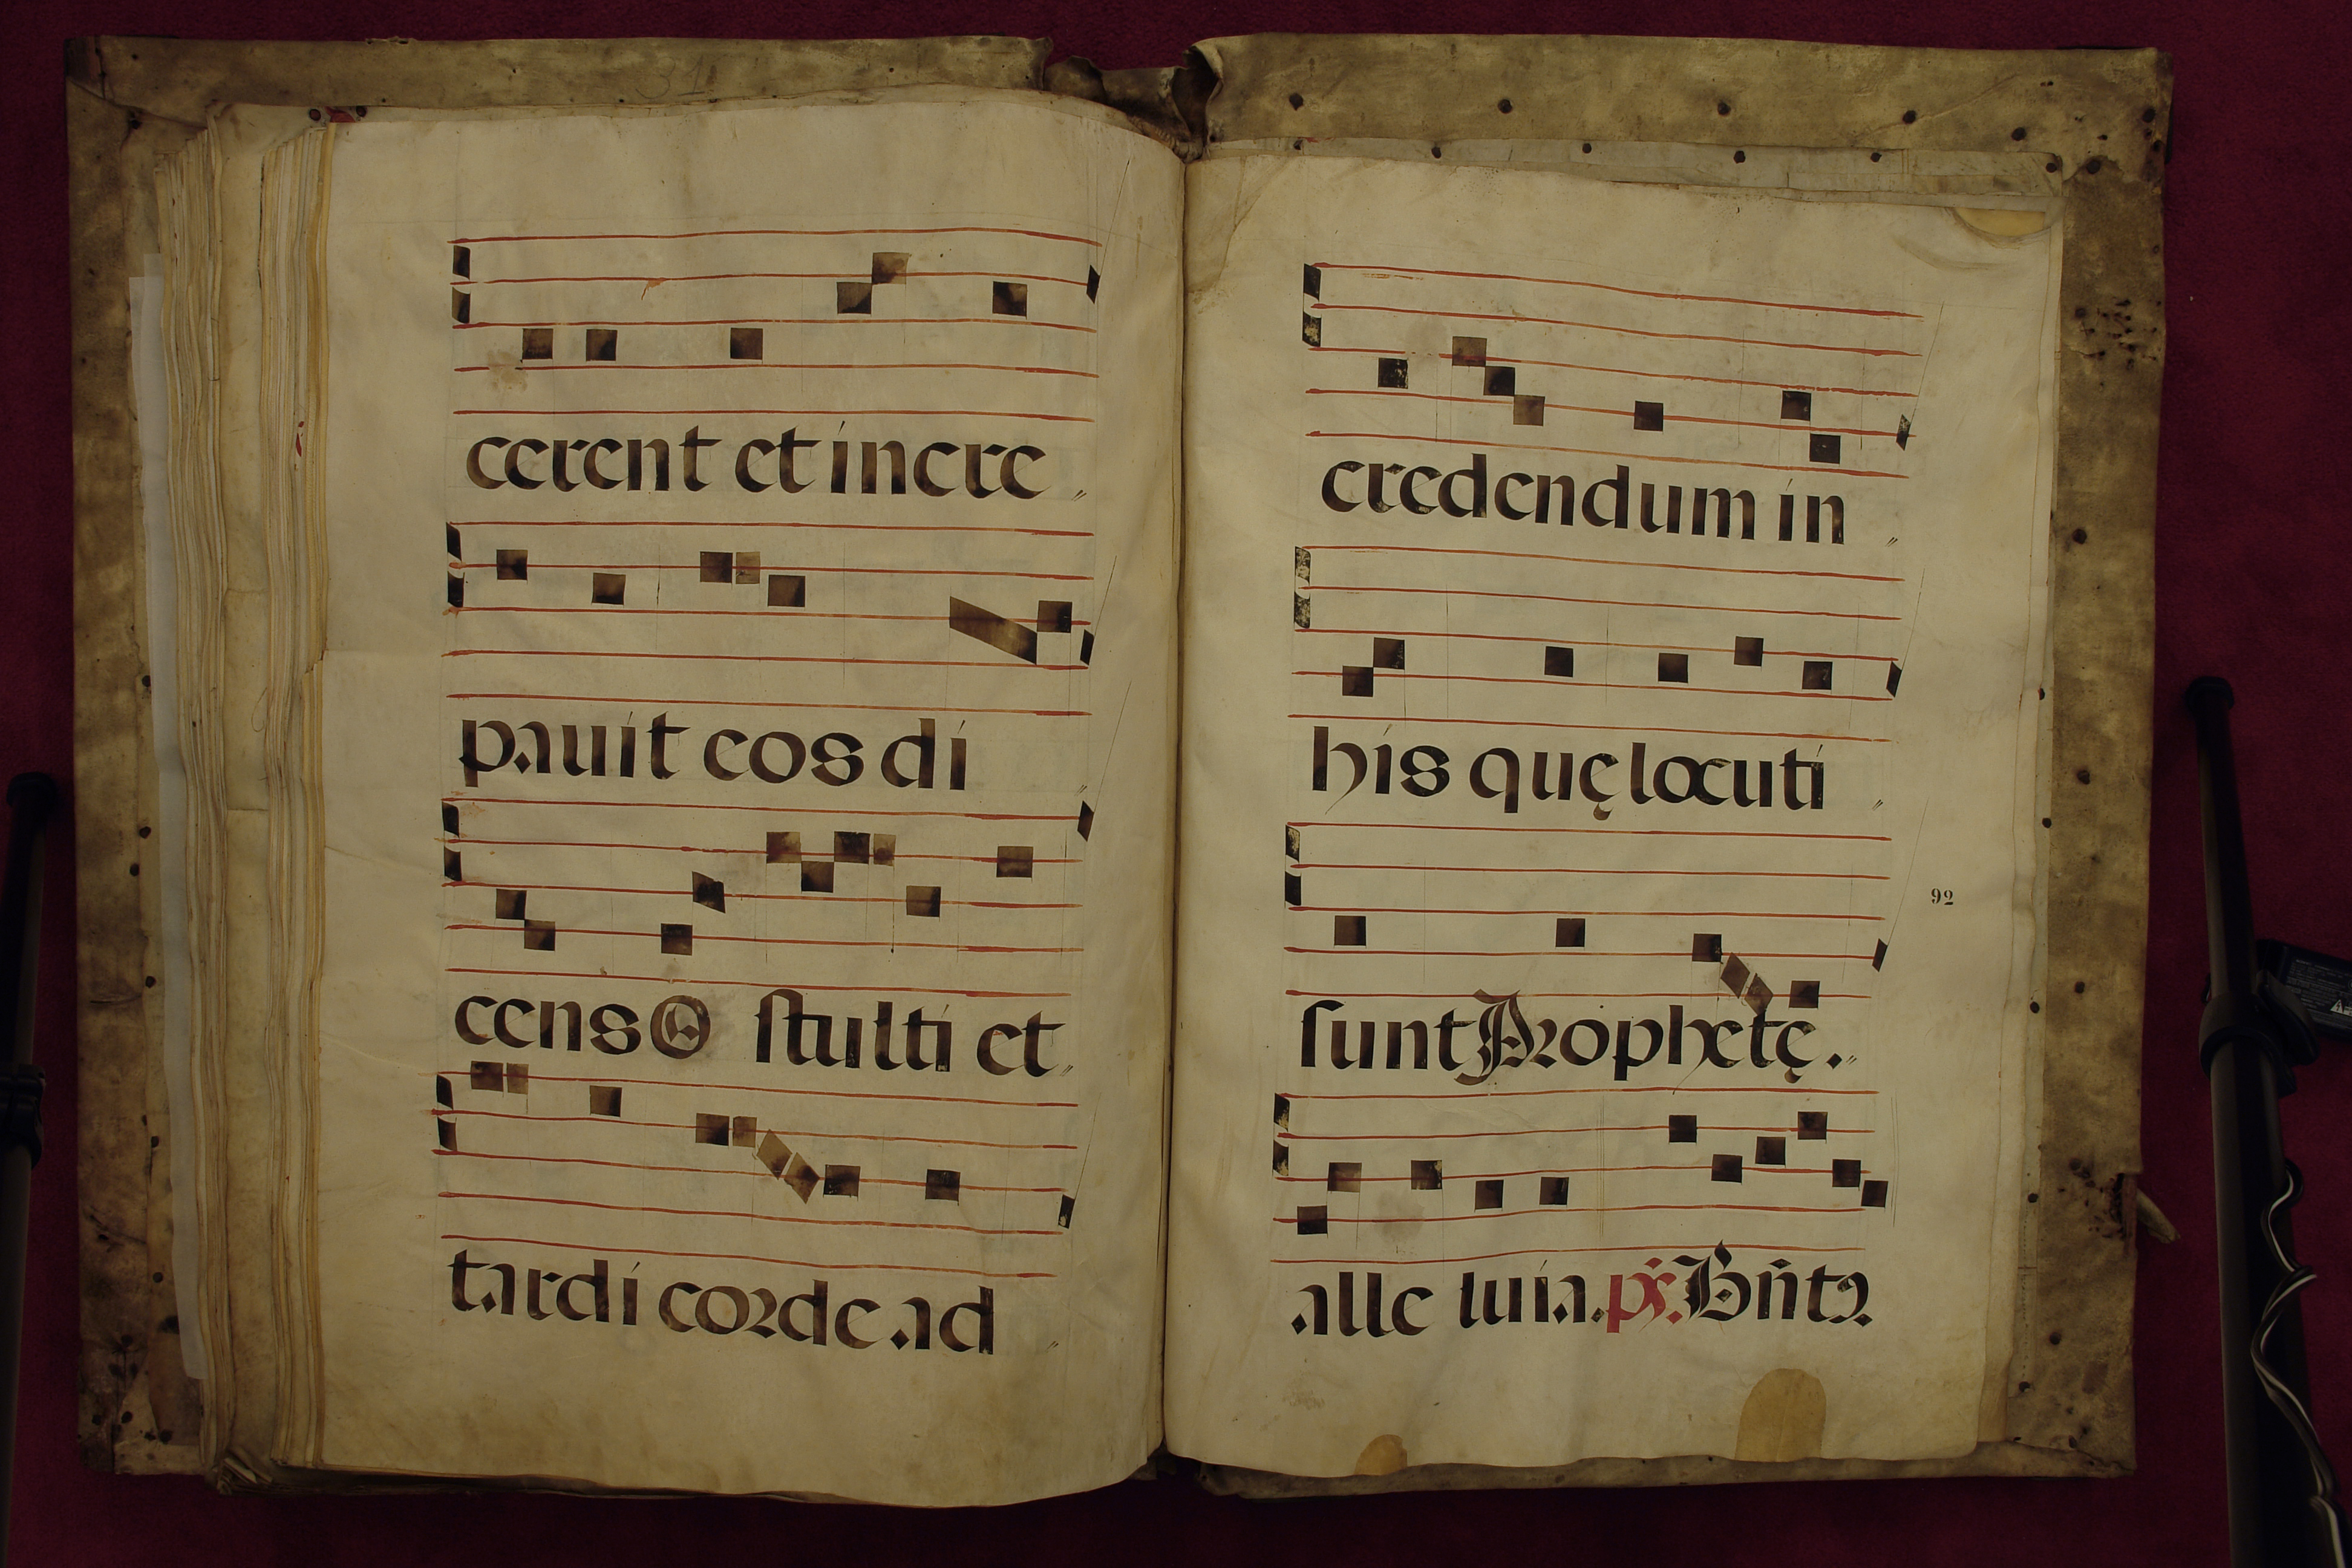 31
cerent et incre
pauit eos di
cens O stulti et
tardi corde ad
credendum in
his quę locuti
92
sunt Prophetę.
alle luia. ps. Bn̄tꝫ